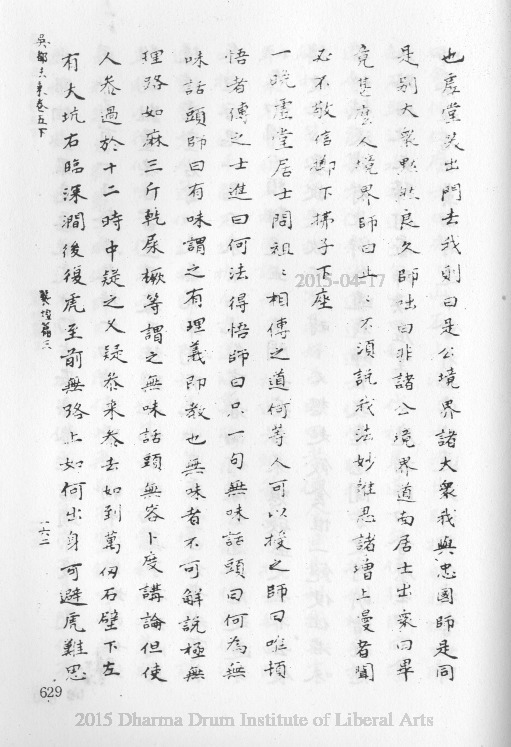 也虛堂笑出門去我則曰是公境界諸大衆我與忠國師是同
是别大衆默然良久師咄曰非諸公境界道南居士出衆曰畢
竟甚麼人境界師曰止止不須說我法妙難思諸增上曼者聞
必不敬信擲下拂子下座
一晚虛堂居士問祖祖相傳之道何等人可以授之師曰唯頓
悟者傳之士進曰何法得悟師曰只一句無味話頭曰何為無
味話頭師曰有味謂之有理義即教也無味者不可解說極無
理路如麻三斤乾屎橛等謂之無味話頭無容卜度講論但使
人叅過於十二時中疑之又疑叅来叅去如到萬仞石壁下左
有大坑右臨深澗後復虎至前無路上如何出身可避虎難思
吳都志乘卷五下
一六二
629
2015-04-17
2015 Dharma Drum Institute of Liberal Arts